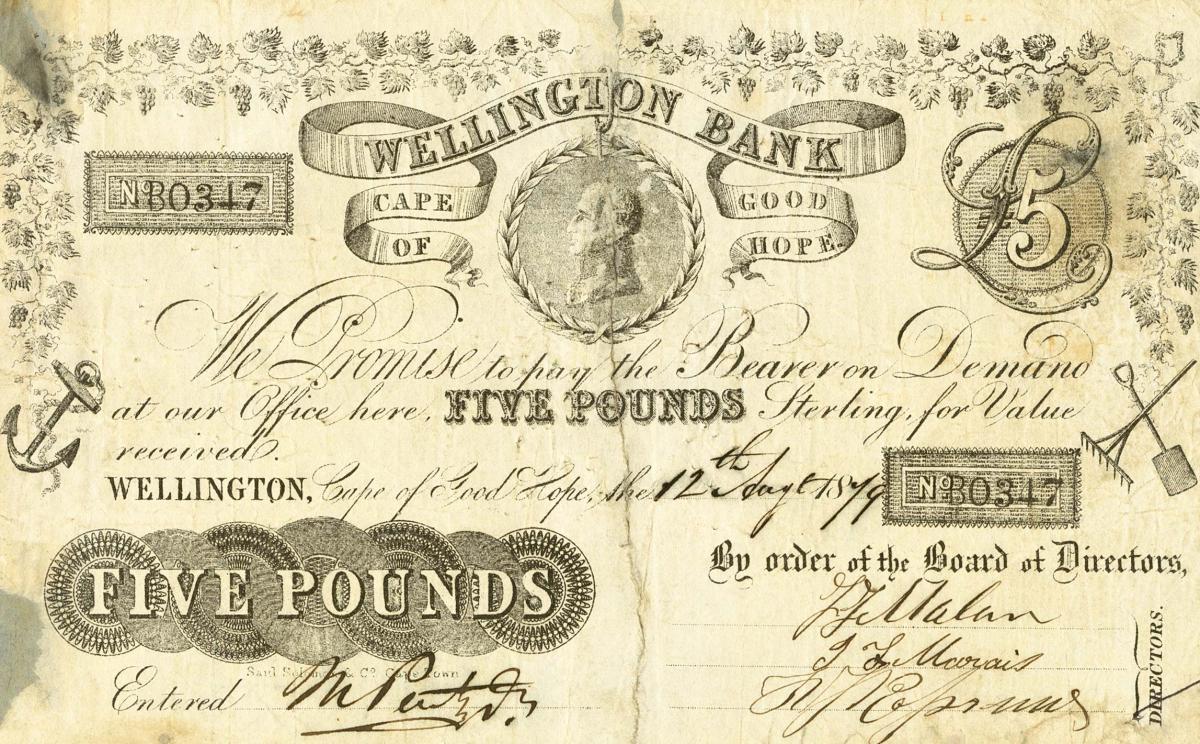 WELLINGTON BANK
CAPE OF GOOD HOPE.
No B0347
£5
We Promise to pay the Bearer on Demand
at our Office here, FIVE POUNDS Sterling, for Value
received.
WELLINGTON, Cape of Good Hope, the 12th Augt 1879
No B0347
FIVE POUNDS
By order of the Board of Directors,
Malan
Marais
DIRECTORS.
Saul Solomon & Co. Cape Town
Entered